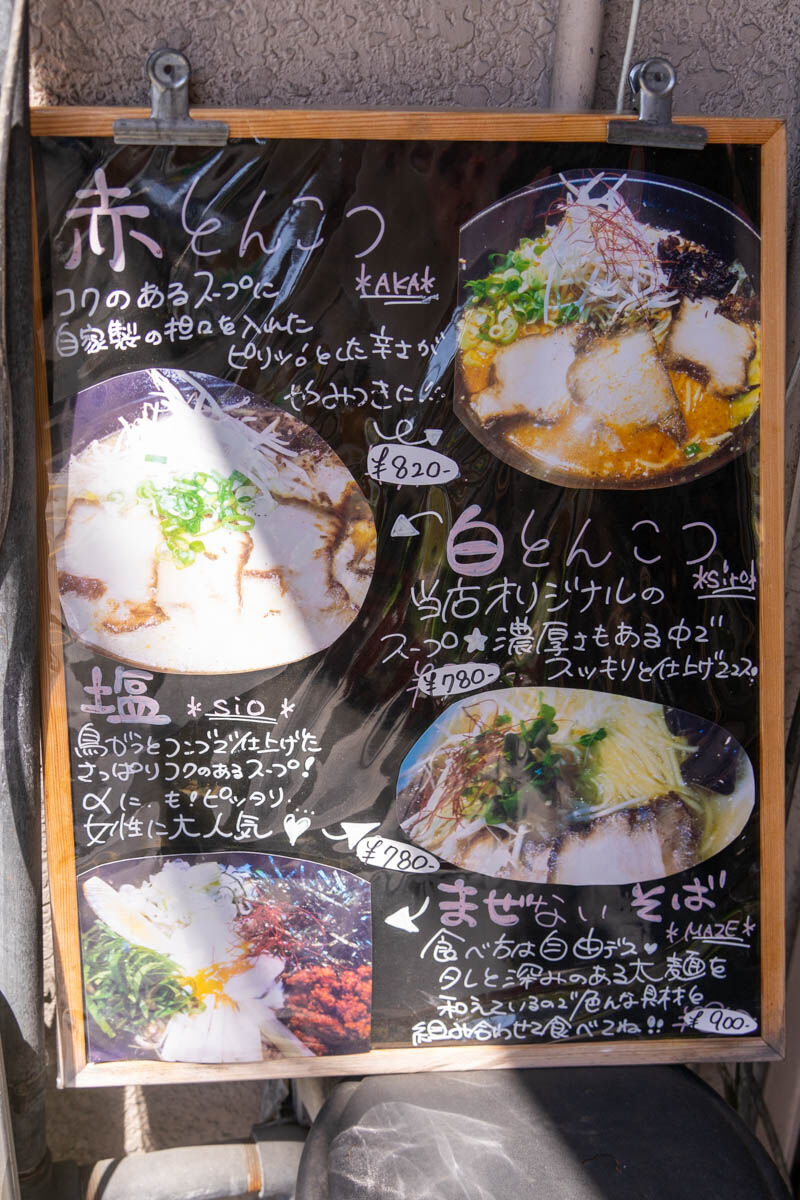 赤とんこつ
*AKA*
コクのあるスープに
自家製の担々を入れた
ピリッとした辛さが
やみつきに!!
¥820-
白とんこつ
*siro*
当店オリジナルの
スープ★濃厚さもある中で
スッキリと仕上げてマス!
¥780-
塩 *sio*
鳥がらとコンブで仕上げた
さっぱりコクのあるスープ!
〆に、も!ピッタリ...
女性に大人気♡
¥780-
まぜないそば
*MAZE*
食べ方は自由デス♥
タレと深みのある太麺を
和えているので色んな具材を
組み合わせて食べてね!!
¥900-